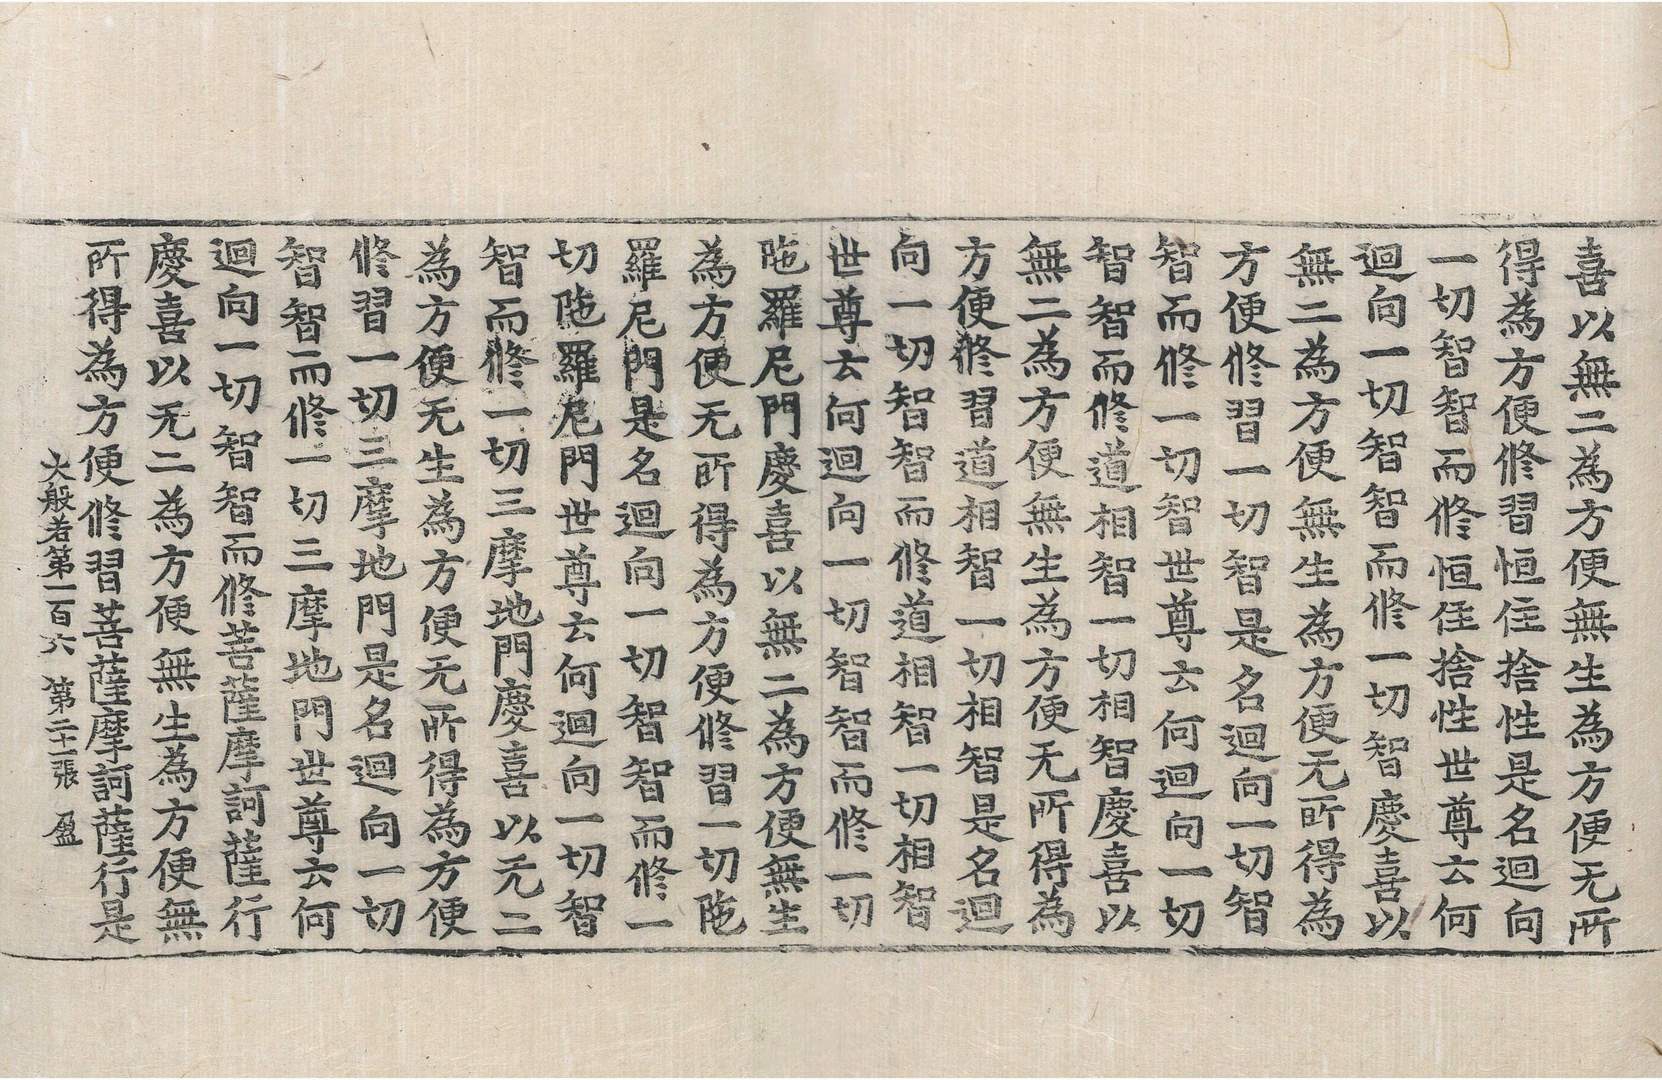 喜以無二為方便無生為方便无所
得為方便修習恒住捨性是名迴向
一切智智而修恒住捨性世尊云何
迴向一切智智而修一切智慶喜以
無二為方便無生為方便无所得為
方便修習一切智是名迴向一切智
智而修一切智世尊云何迴向一切
智智而修道相智一切相智慶喜以
無二為方便無生為方便无所得為
方便修習道相智一切相智是名迴
向一切智智而修道相智一切相智
世尊云何迴向一切智智而修一切
陁羅尼門慶喜以無二為方便無生
為方便无所得為方便修習一切陁
羅尼門是名迴向一切智智而修一
切陁羅尼門世尊云何迴向一切智
智而修一切三摩地門慶喜以无二
為方便无生為方便无所得為方便
修習一切三摩地門是名迴向一切
智智而修一切三摩地門世尊云何
迴向一切智智而修菩薩摩訶薩行
慶喜以无二為方便無生為方便無
所得為方便修習菩薩摩訶薩行是
大般若第一百六 第二十一張 盈